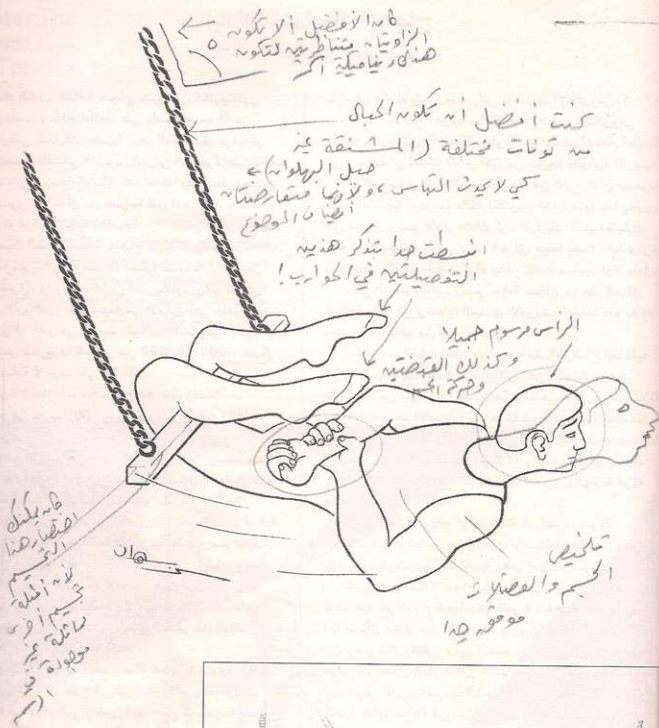 كان الأفضل ألا تكون
الزاويتان متناظرتين لتكون
هناك ديناميكية أكثر
كنت افضل أن تكون الحبال
من نوعات مختلفة (المشنقة غير
حبل البهلوان)
كي لا يحدث التباس، ولأنهما متعارضتان
أيضاً في الموضوع
انبسطت جدا بتذكر هذين
التفصيلتين في الجوارب!
الراس مرسوم جميلا
وكذلك القبضتين
وحركة الجسم
تلخيص
الجسم والعضلات
موفق جدا
كان يمكنك
اختصار هذا
التجسيم
لأن أمثلة
تجسيم أخرى
مماثلة غير
موجودة في
الرسم